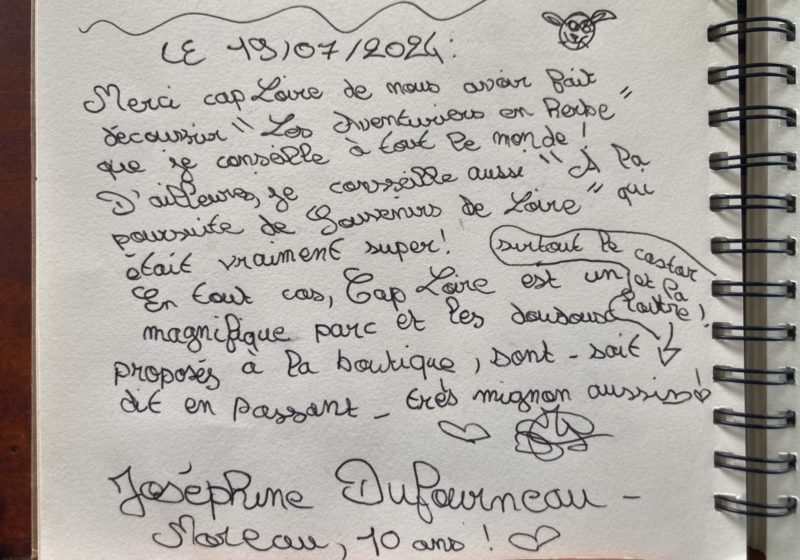 LE 19/07/2024:
Merci cap Loire de nous avoir fait
découvrir "Les Aventuriers en Herbe"
que je conseille à tout le monde!
D'ailleures, je conseille aussi "À la
poursuite de Souvenirs de Loire" qui
était vraiment super! surtout le castor
et la loutre!
En tout cas, Cap Loire est un
magnifique parc et les doudous
proposés à la boutique, sont - soit
dit en passant - très mignon aussis
Joséphine Dufourneau -
Moreau, 10 ans!